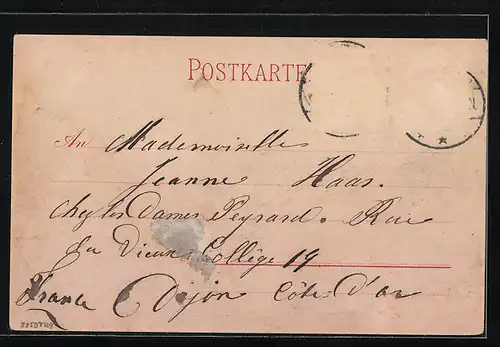 POSTKARTE
An Mademoiselle
Jeanne Haas.
Chez les Dames Peyrard. Rue
du Vieux Collège 19
France Dijon Côte d'or